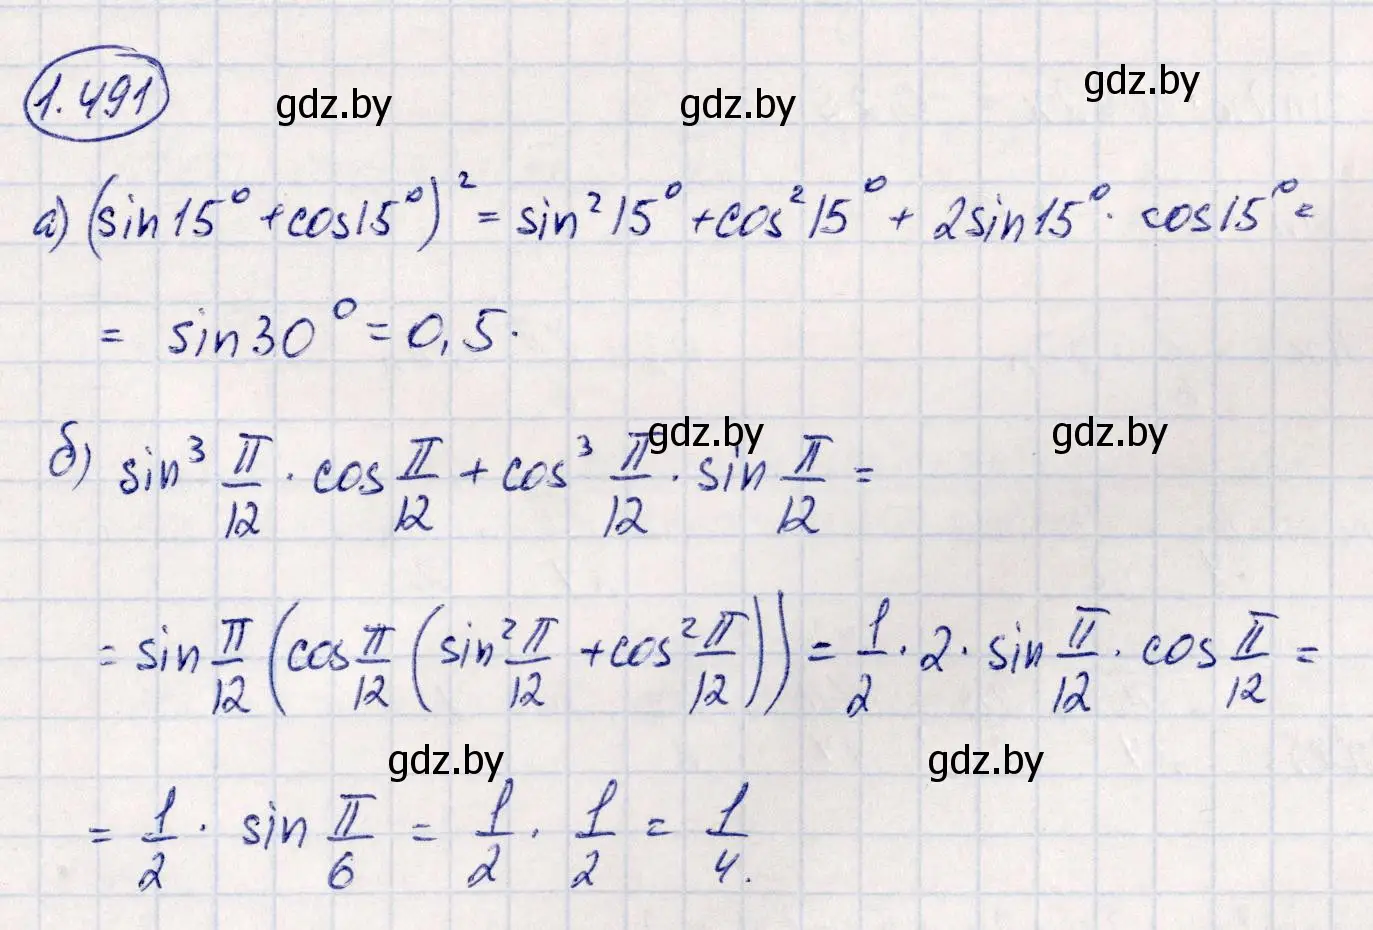 1.491
gdz.by gdz.by gdz.by
а) (sin15° + cos15°)² = sin²15° + cos²15° + 2sin15° · cos15° =
= sin30° = 0,5.
gdz.by gdz.by
б) sin³ π/12 · cos π/12 + cos³ π/12 · sin π/12 =
= sin π/12 (cos π/12 (sin² π/12 + cos² π/12)) = 1/2 · 2 · sin π/12 · cos π/12 =
gdz.by gdz.by
= 1/2 · sin π/6 = 1/2 · 1/2 = 1/4.